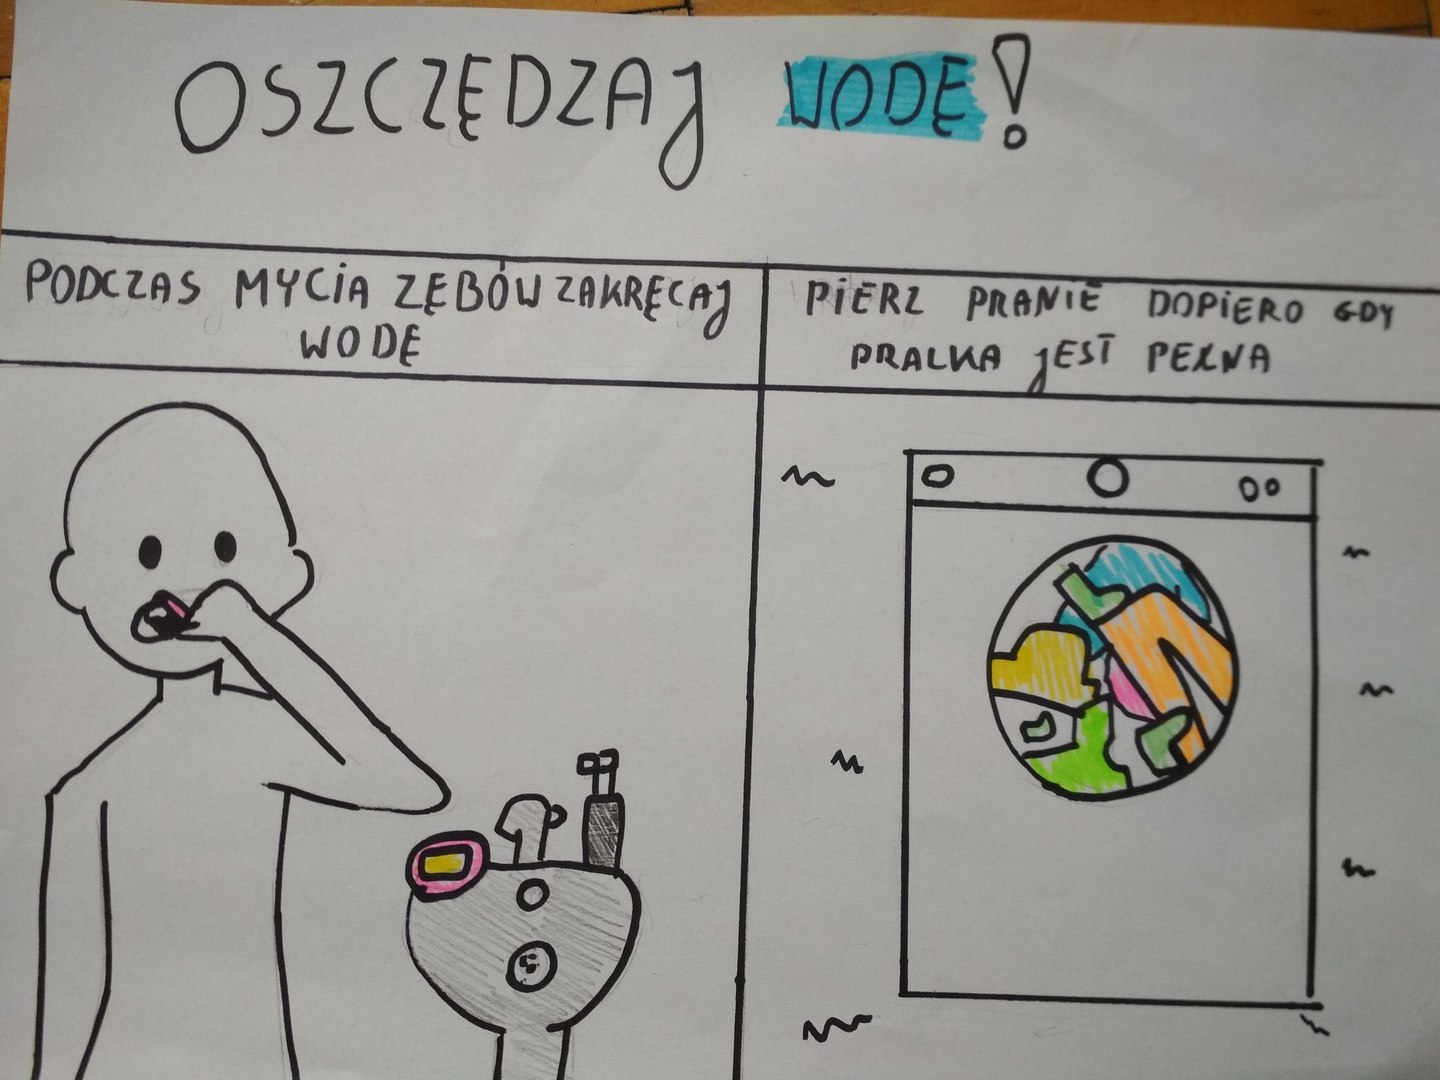 OSZCZĘDZAJ WODĘ!
PODCZAS MYCIA ZĘBÓW ZAKRĘCAJ
WODĘ
PIERZ PRANIE DOPIERO GDY
PRALKA JEST PEŁNA